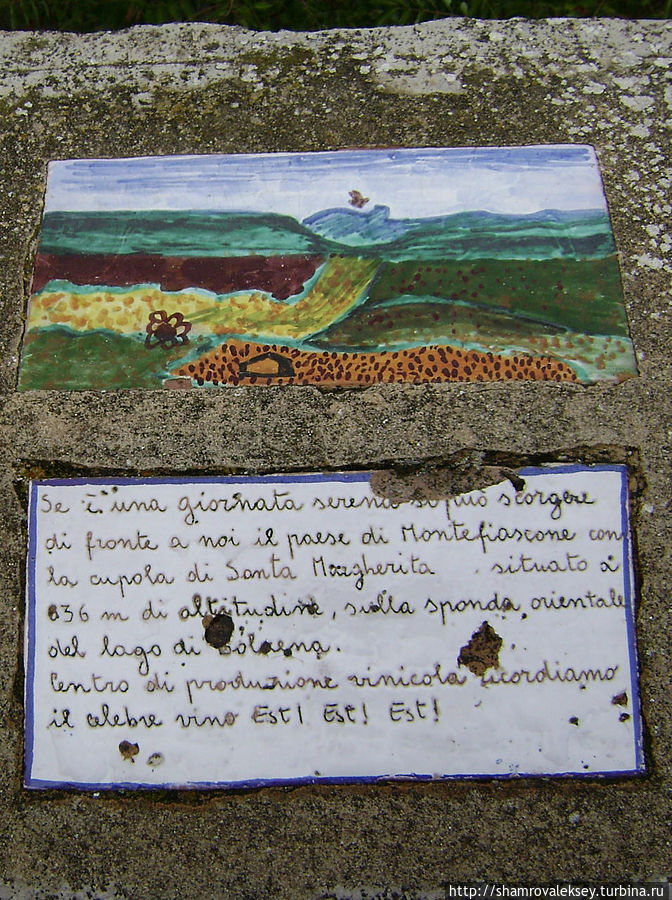 Se è una giornata serena si può scorgere
di fronte a noi il paese di Montefiascone con
la cupola di Santa Margherita situato a
636 m di altitudine, sulla sponda orientale
del lago di Bolsena.
Centro di produzione vinicola ricordiamo
il celebre vino EST! EST! EST!
http://shamrovaleksey.turbina.ru